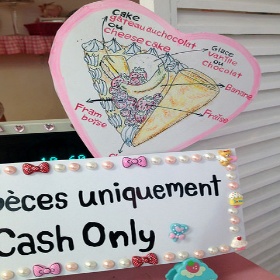 Cake
gâteau du chocolat
ou
cheese cake
Glace
Vanille
ou
chocolat
Banane
Fraise
Fram
boise
èces uniquement
Cash Only